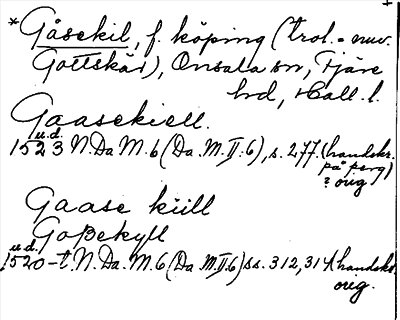 *Gåsekil, f. köping (trol. = nuv.
Gottskär), Onsala sn, Fjäre
hd, Hall. l.
Gaasekiell.
u.d.
1523 N.Da M. 6 (Da. M. II: 6), s. 277. (handskr.
på perg)
? orig
Gaase kiill
Goßekyll
u.d.
1520-t. N. Da. M. 6 (Da M. II: 6) ss. 312, 314 (handskr.
orig.